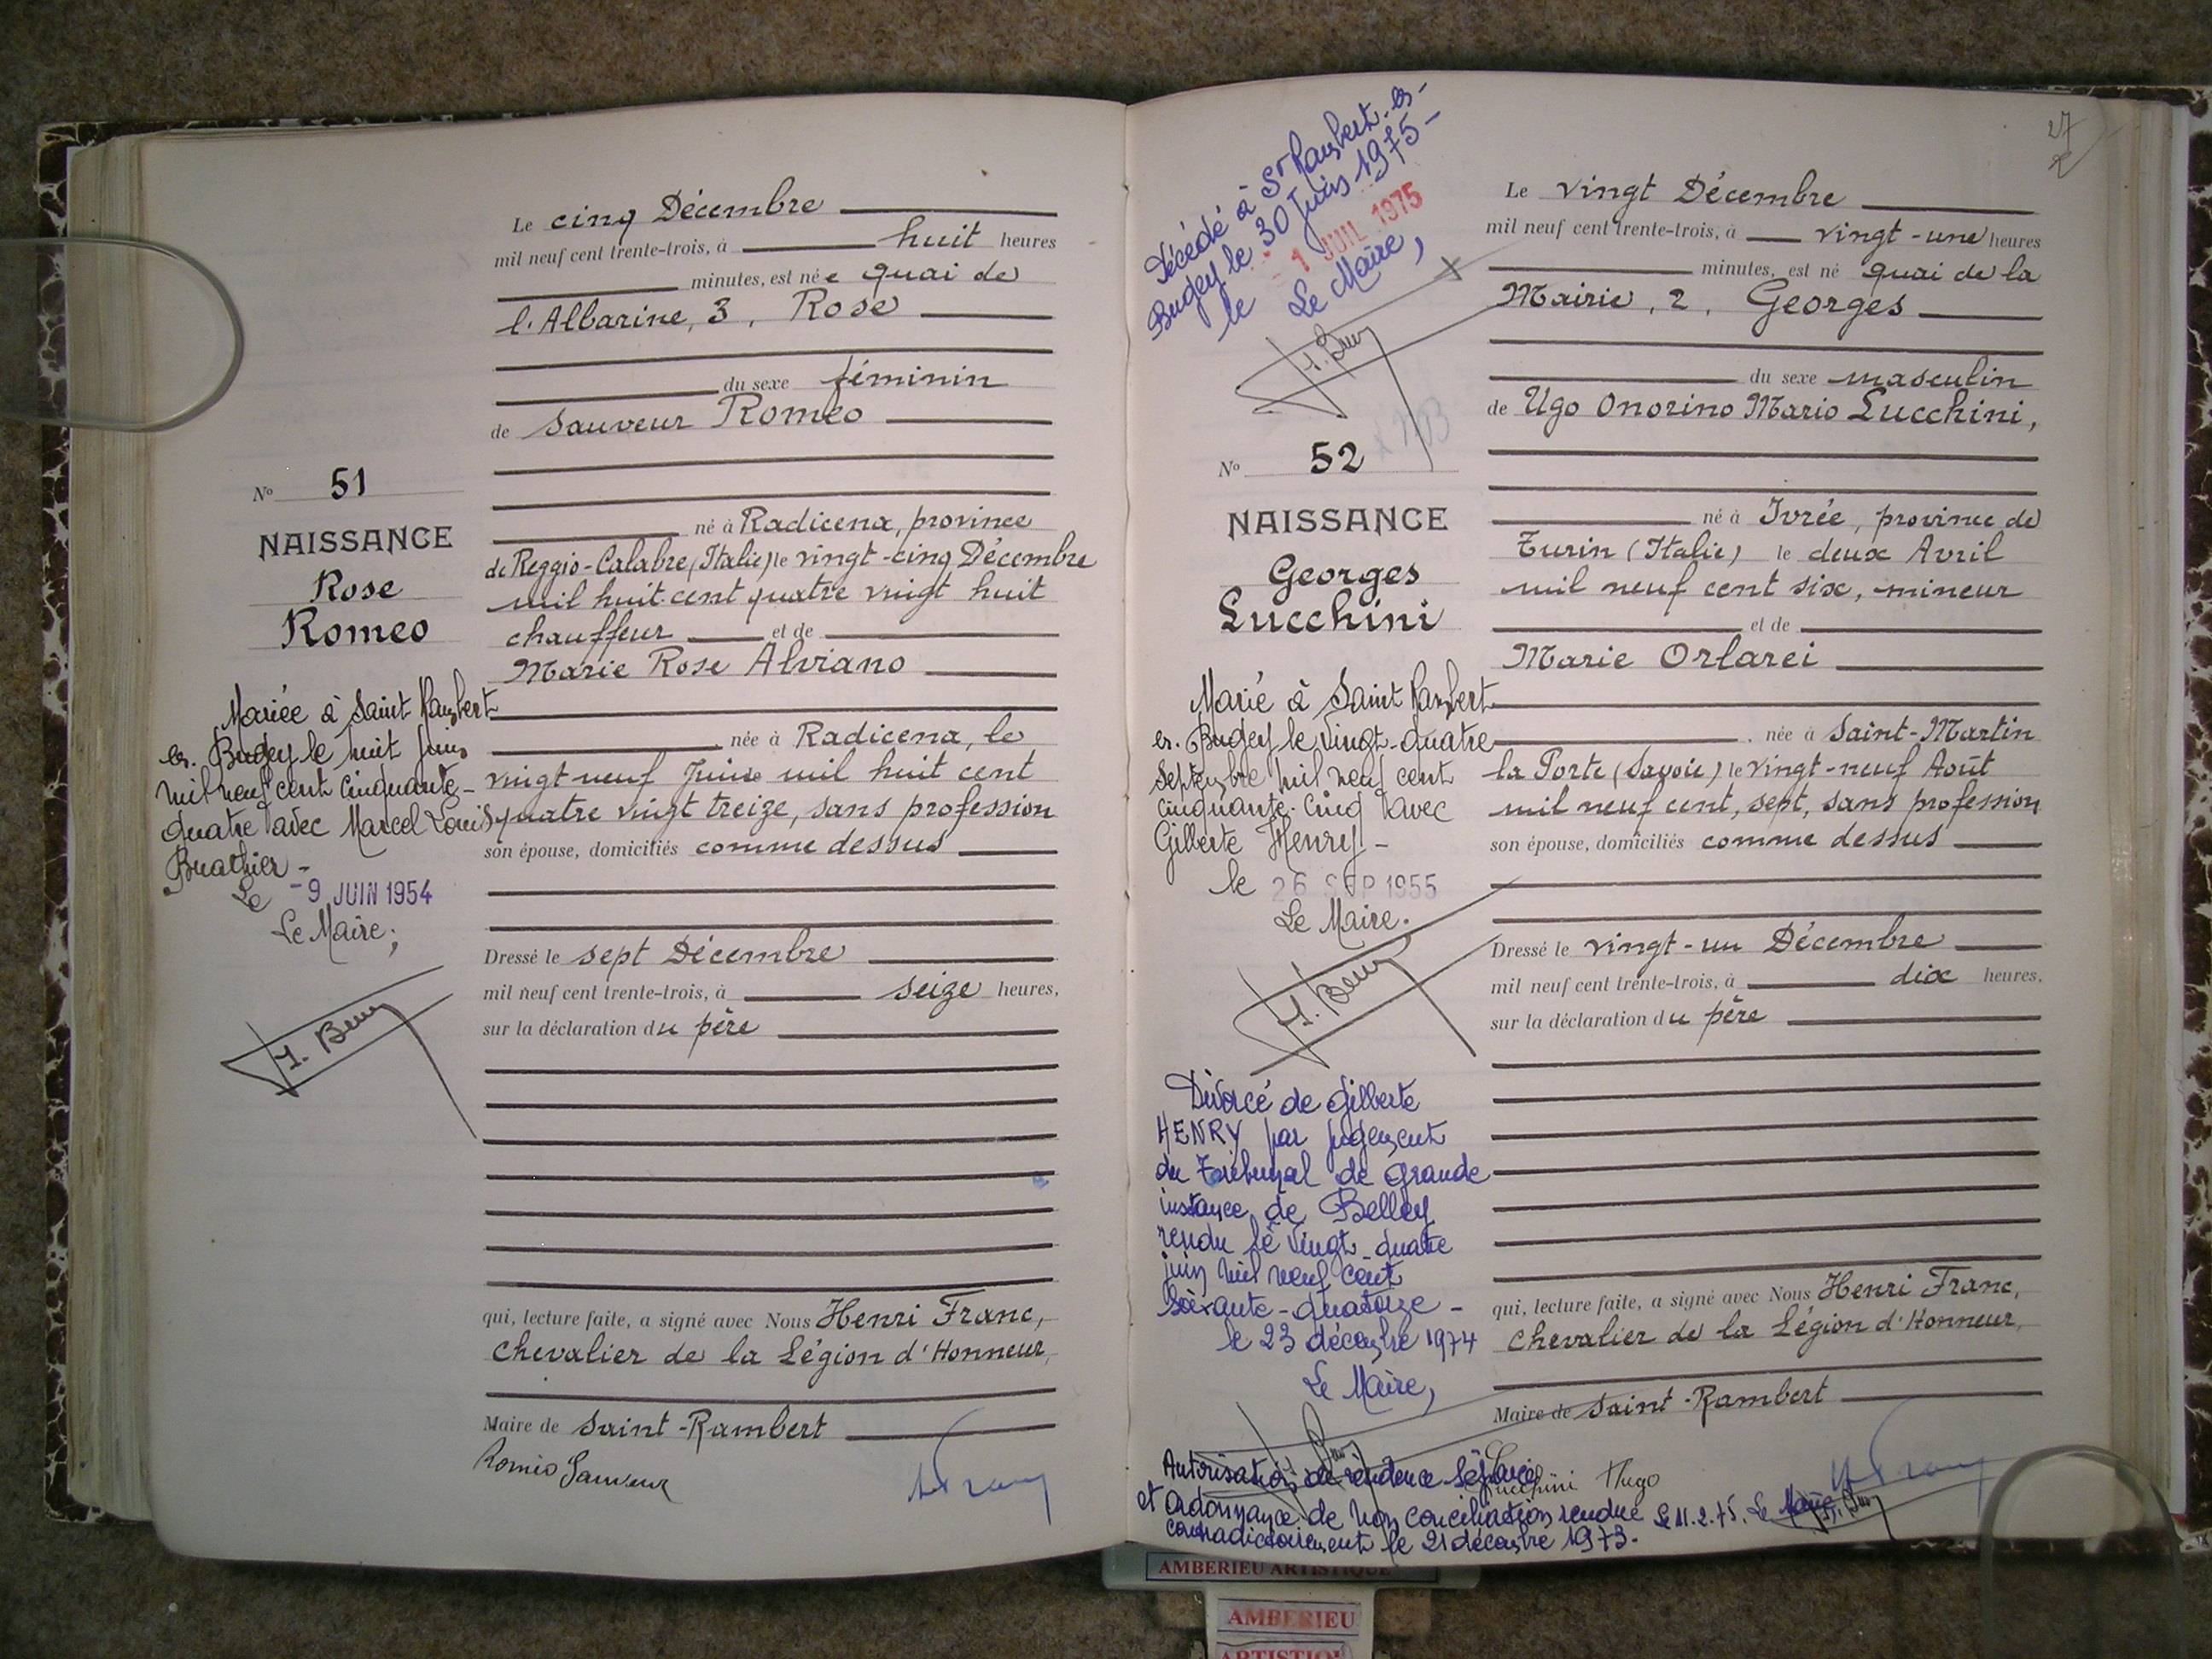 Le cinq Décembre
mil neuf cent trente-trois, à huit heures
minutes, est née quai de
l'Albarine, 3, Rose
du sexe féminin
de Sauveur Romeo
né à Radicena, province
de Reggio-Calabre, (Italie) le vingt-cinq Décembre
mil huit cent quatre vingt huit
chauffeur et de
Marie Rose Alviano
née à Radicena, le
vingt neuf Juin mil huit cent
quatre vingt treize, sans profession
son épouse, domiciliés comme dessus
Dressé le sept Décembre
mil neuf cent trente-trois, à seize heures,
sur la déclaration du père
qui, lecture faite, a signé avec Nous Henri Franc,
Chevalier de la Légion d'Honneur,
Maire de Saint-Rambert
Romeo Sauveur
No 51
NAISSANCE
Rose
Romeo
Mariée à Saint Rambert
en Bugey le huit juin
mil neuf cent cinquante-
quatre avec Marcel Louis
Buathier -
Le -9 JUIN 1954
Le Maire,
27
Décédé à St Rambert-en-
Bugey le 30 Juin 1975-
le -1 JUIL 1975
Le Maire,
No 52
NAISSANCE
Georges
Lucchini
Marié à Saint Rambert
en-Bugey le vingt-quatre
septembre mil neuf cent
cinquante-cinq avec
Gilberte Henry -
le 26 SEP 1955
Le Maire.
Divorcé de Gilberte
HENRY par jugement
du Tribunal de Grande
instance de Belley
rendu le vingt-quatre
juin mil neuf cent
soixante-quatorze -
le 23 décembre 1974
Le Maire,
Le vingt Décembre
mil neuf cent trente-trois, à vingt-une heures
minutes, est né quai de la
Mairie, 2, Georges
du sexe masculin
de Ugo Onorino Mario Lucchini,
né à Ivrée, province de
Turin (Italie) le deux Avril
mil neuf cent six, mineur
et de
Marie Orlarei
née à Saint-Martin
la Porte (Savoie) le vingt-neuf Août
mil neuf cent, sept, sans profession
son épouse, domiciliés comme dessus
Dressé le vingt-un Décembre
mil neuf cent trente-trois, à dix heures,
sur la déclaration du père
qui, lecture faite, a signé avec Nous Henri Franc,
Chevalier de la Légion d'Honneur,
Maire de Saint-Rambert
Lucchini Hugo
Autorisation de résidence séparée
et Ordonnance de non conciliation rendue le 11.2.75. Le Maire,
contradictoirement le 21 décembre 1973.
AMBERIEU ARTISTIQUE
AMBERIEU
ARTISTIQUE